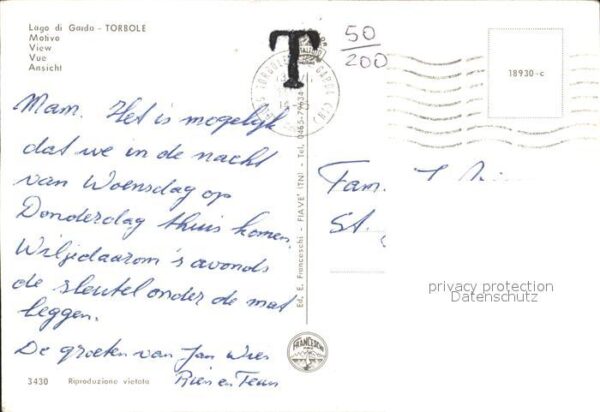 Lago di Garda - TORBOLE
Motivo
View
Vue
Ansicht
T
50/200
18930-c
Mam. Het is mogelijk
dat we in de nacht
van Woensdag op
Donderdag thuis komen.
Wil je daarom 's avonds
de sleutel onder de mat
leggen.
De groeten van Jan Wies
Rien en Teun
Fam.
St.
Ed. E. Franceschi - FIAVÈ (TN) - Tel. 0465-79634
FRANCESCHI
privacy protection
Datenschutz
3430 Riproduzione vietata